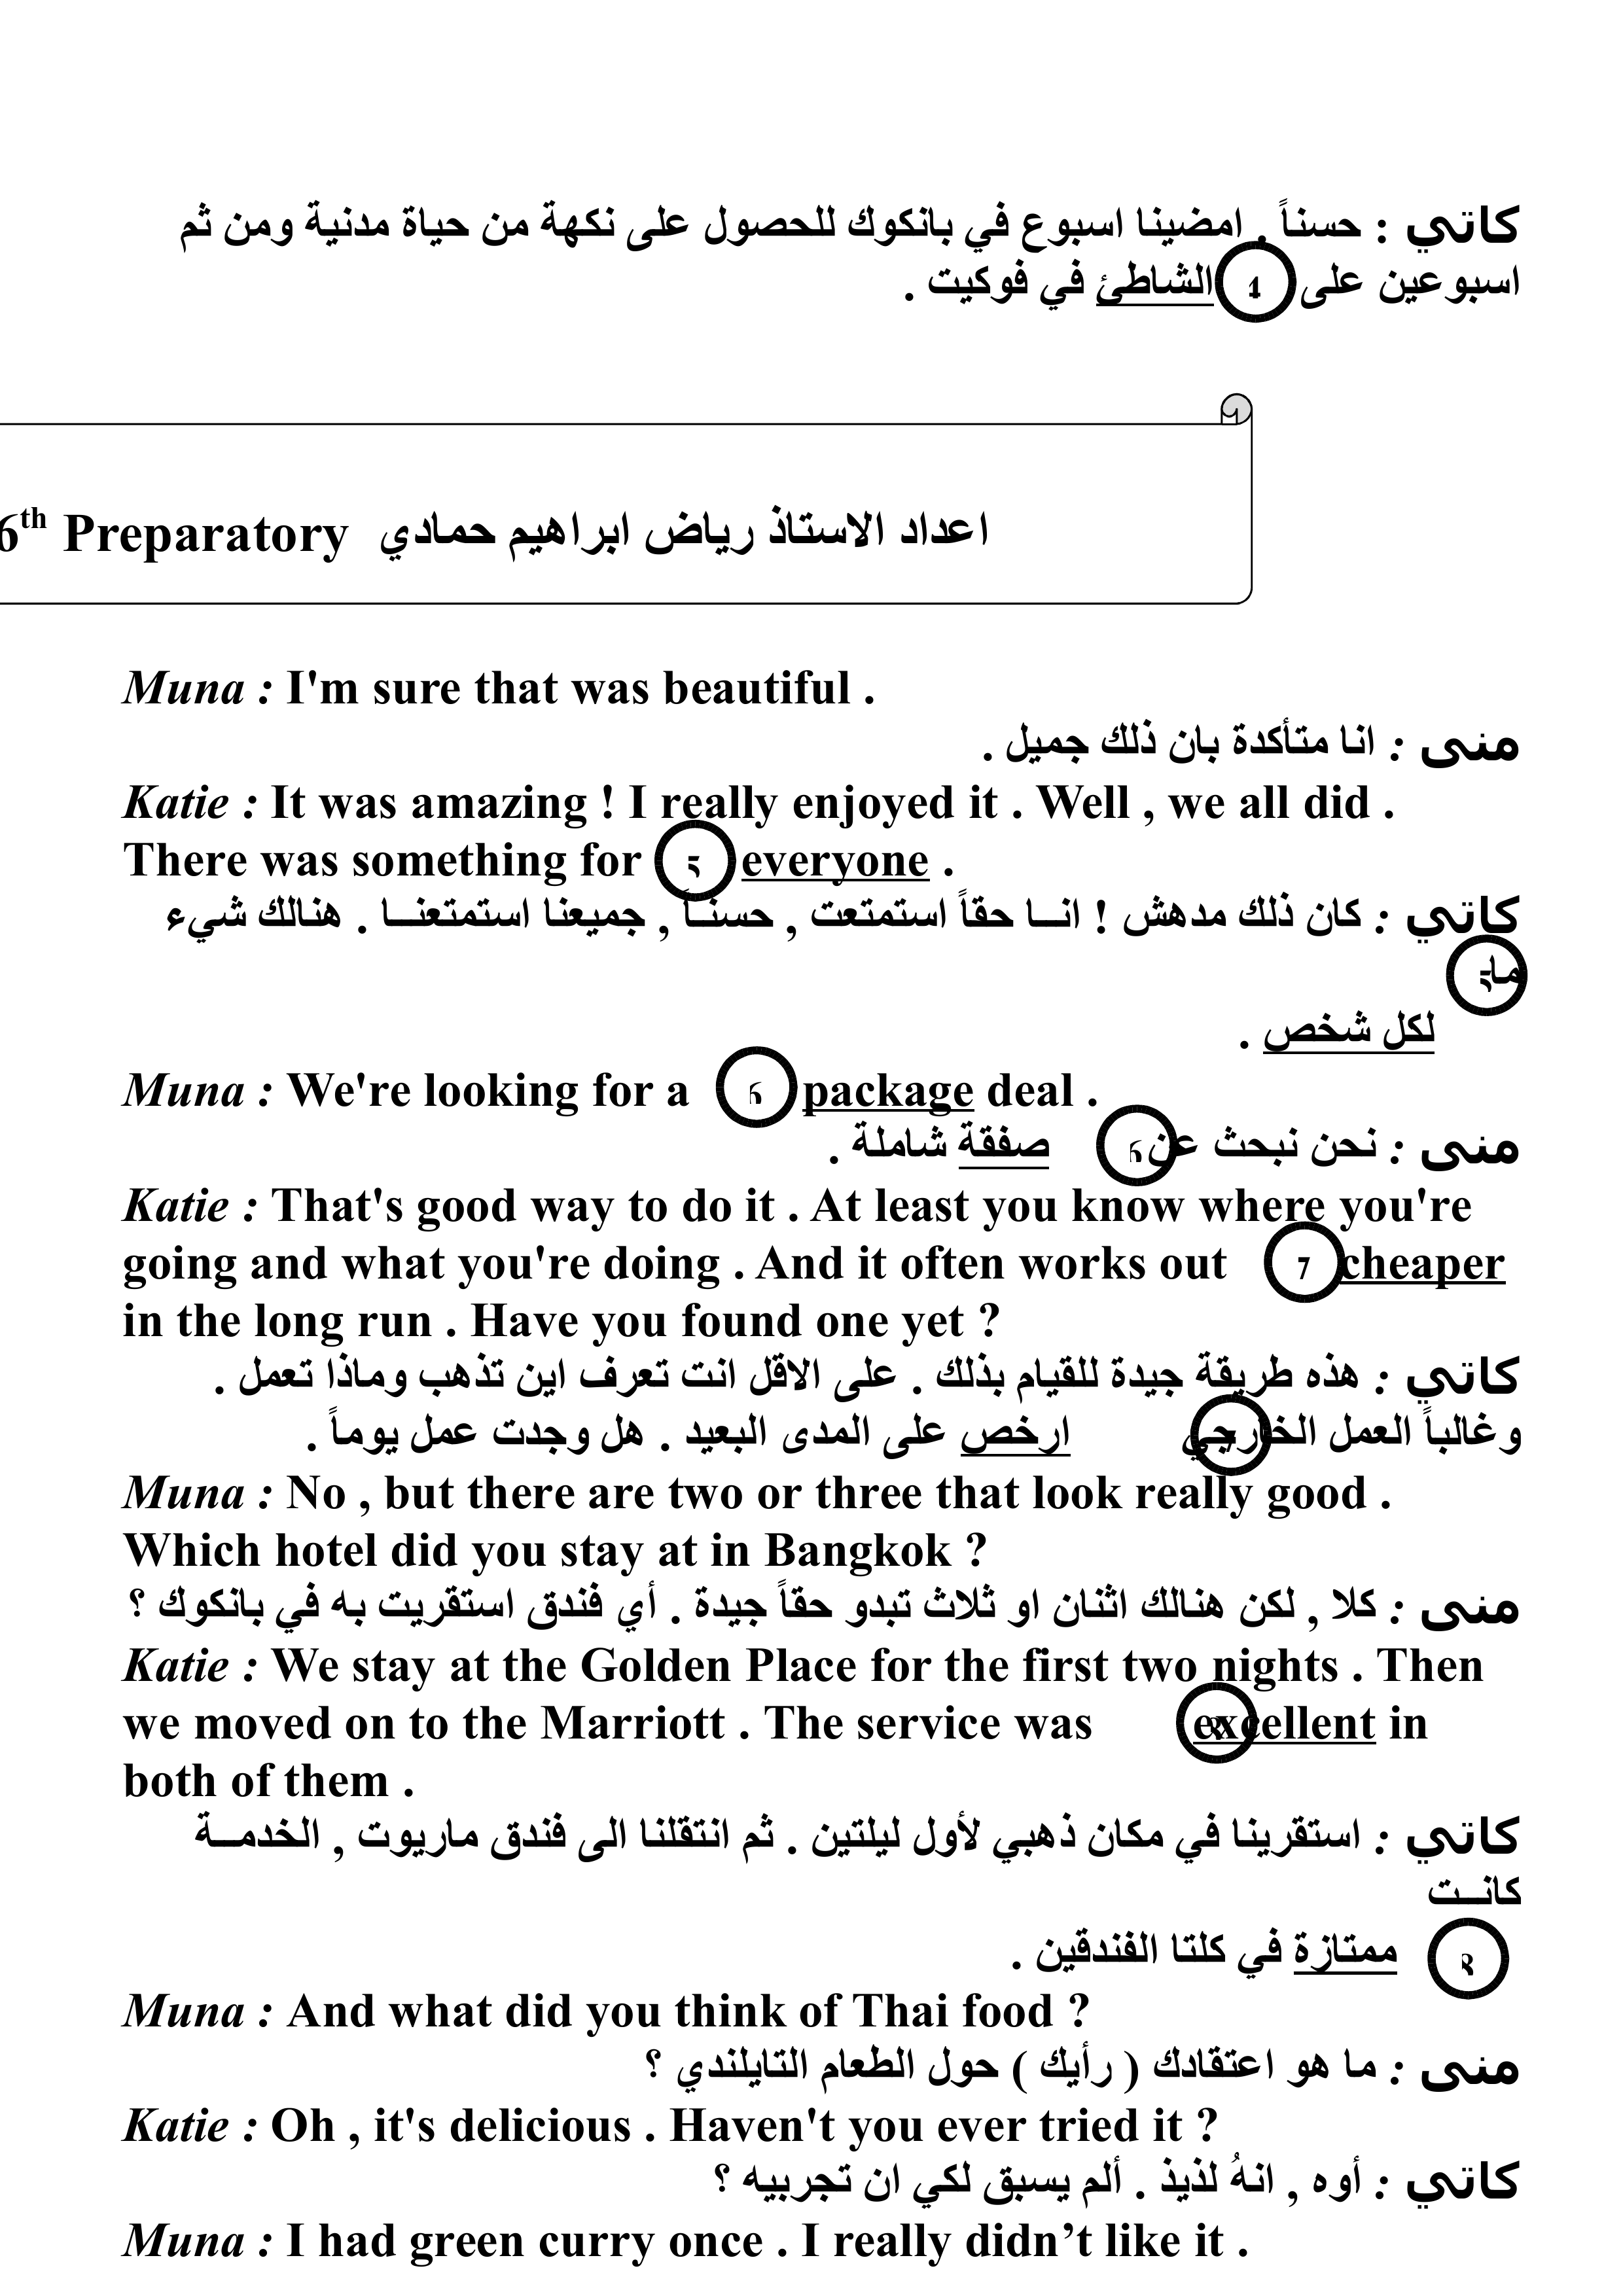 كاتي : حسناً . امضينا اسبوع في بانكوك للحصول على نكهة من حياة مدنية ومن ثم
اسبوعين على 4 الشاطئ في فوكيت .
6th Preparatory اعداد الاستاذ رياض ابراهيم حمادي
Muna : I'm sure that was beautiful .
منى : انا متأكدة بان ذلك جميل .
Katie : It was amazing ! I really enjoyed it . Well , we all did .
There was something for 5 everyone .
كاتي : كان ذلك مدهش ! انـــا حقاً استمتعت , حسنــاً , جميعنا استمتعنـــا . هنالك شيء
ما 5
لكل شخص .
Muna : We're looking for a 6 package deal .
منى : نحن نبحث عن 6 صفقة شاملة .
Katie : That's good way to do it . At least you know where you're
going and what you're doing . And it often works out 7 cheaper
in the long run . Have you found one yet ?
كاتي : هذه طريقة جيدة للقيام بذلك . على الاقل انت تعرف اين تذهب وماذا تعمل .
وغالباً العمل الخارجي 7 ارخص على المدى البعيد . هل وجدت عمل يوماً .
Muna : No , but there are two or three that look really good .
Which hotel did you stay at in Bangkok ?
منى : كلا , لكن هنالك اثنان او ثلاث تبدو حقاً جيدة . أي فندق استقريت به في بانكوك ؟
Katie : We stay at the Golden Place for the first two nights . Then
we moved on to the Marriott . The service was 8 excellent in
both of them .
كاتي : استقرينا في مكان ذهبي لأول ليلتين . ثم انتقلنا الى فندق ماريوت , الخدمـــة
كانـــت
8 ممتازة في كلتا الفندقين .
Muna : And what did you think of Thai food ?
منى : ما هو اعتقادك ( رأيك ) حول الطعام التايلندي ؟
Katie : Oh , it's delicious . Haven't you ever tried it ?
كاتي : أوه , انهُ لذيذ . ألم يسبق لكي ان تجربيه ؟
Muna : I had green curry once . I really didn’t like it .